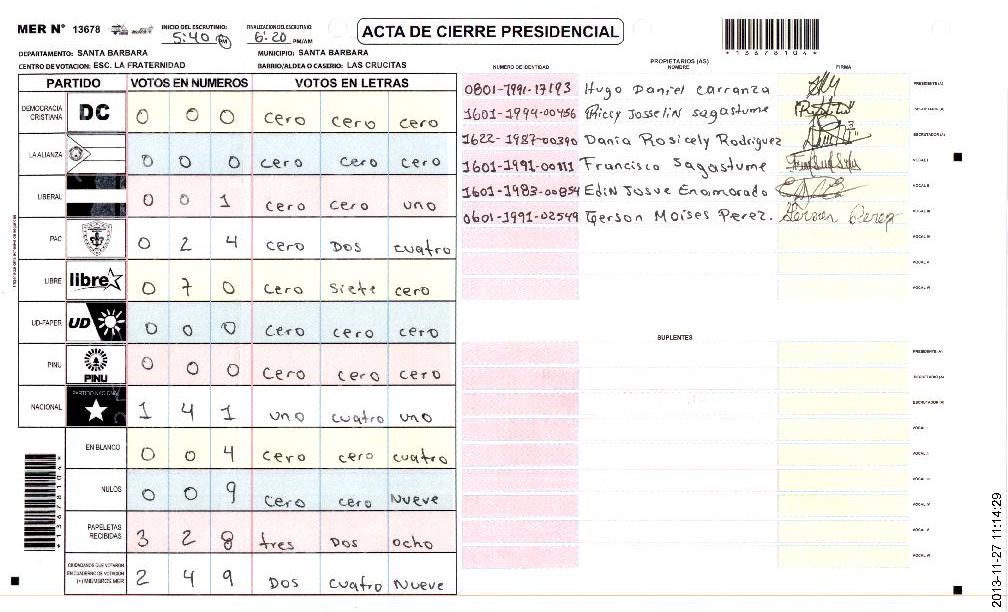 MER N° 13678
INICIO DEL ESCRUTINIO:
5:40 PM
FINALIZACION DEL ESCRUTINIO:
6:20 PM/AM
ACTA DE CIERRE PRESIDENCIAL
*13678104*
DEPARTAMENTO: SANTA BARBARA
MUNICIPIO: SANTA BARBARA
CENTRO DE VOTACION: ESC. LA FRATERNIDAD
BARRIO/ALDEA O CASERIO: LAS CRUCITAS
PARTIDO VOTOS EN NUMEROS VOTOS EN LETRAS
DEMOCRACIA CRISTIANA DC 0 0 0 cero cero cero
LA ALIANZA 0 0 0 cero cero cero
LIBERAL 0 0 1 cero cero uno
PAC 0 2 4 cero Dos cuatro
LIBRE libre 0 7 0 cero siete cero
UD-FAPER UD 0 0 0 cero cero cero
PINU PINU 0 0 0 cero cero cero
NACIONAL PARTIDO NACIONAL 1 4 1 uno cuatro uno
EN BLANCO 0 0 4 cero cero cuatro
NULOS 0 0 9 cero cero Nueve
PAPELETAS RECIBIDAS 3 2 8 tres Dos ocho
CIUDADANOS QUE VOTARON EN CUADERNO DE VOTACION (+) MIEMBROS MER 2 4 9 Dos cuatro Nueve
*13678104*
PROPIETARIOS (AS)
NUMERO DE IDENTIDAD NOMBRE FIRMA
0801-1991-17193 Hugo Daniel carranza PRESIDENTE (A)
1601-1994-00456 Riccy Josselin sagastume SECRETARIO (A)
1622-1987-00390 Dania Rosicely Rodriguez ESCRUTADOR (A)
1601-1991-00111 Francisco Sagastume VOCAL I
1601-1983-00854 Edin Josue Enamorado VOCAL II
0601-1991-02549 Gerson Moises Perez. Gerson Perez VOCAL III
VOCAL IV
VOCAL V
VOCAL VI
SUPLENTES
PRESIDENTE (A)
SECRETARIO (A)
ESCRUTADOR (A)
VOCAL I
VOCAL II
VOCAL III
VOCAL IV
VOCAL V
VOCAL VI
2013-11-27 11:14:29